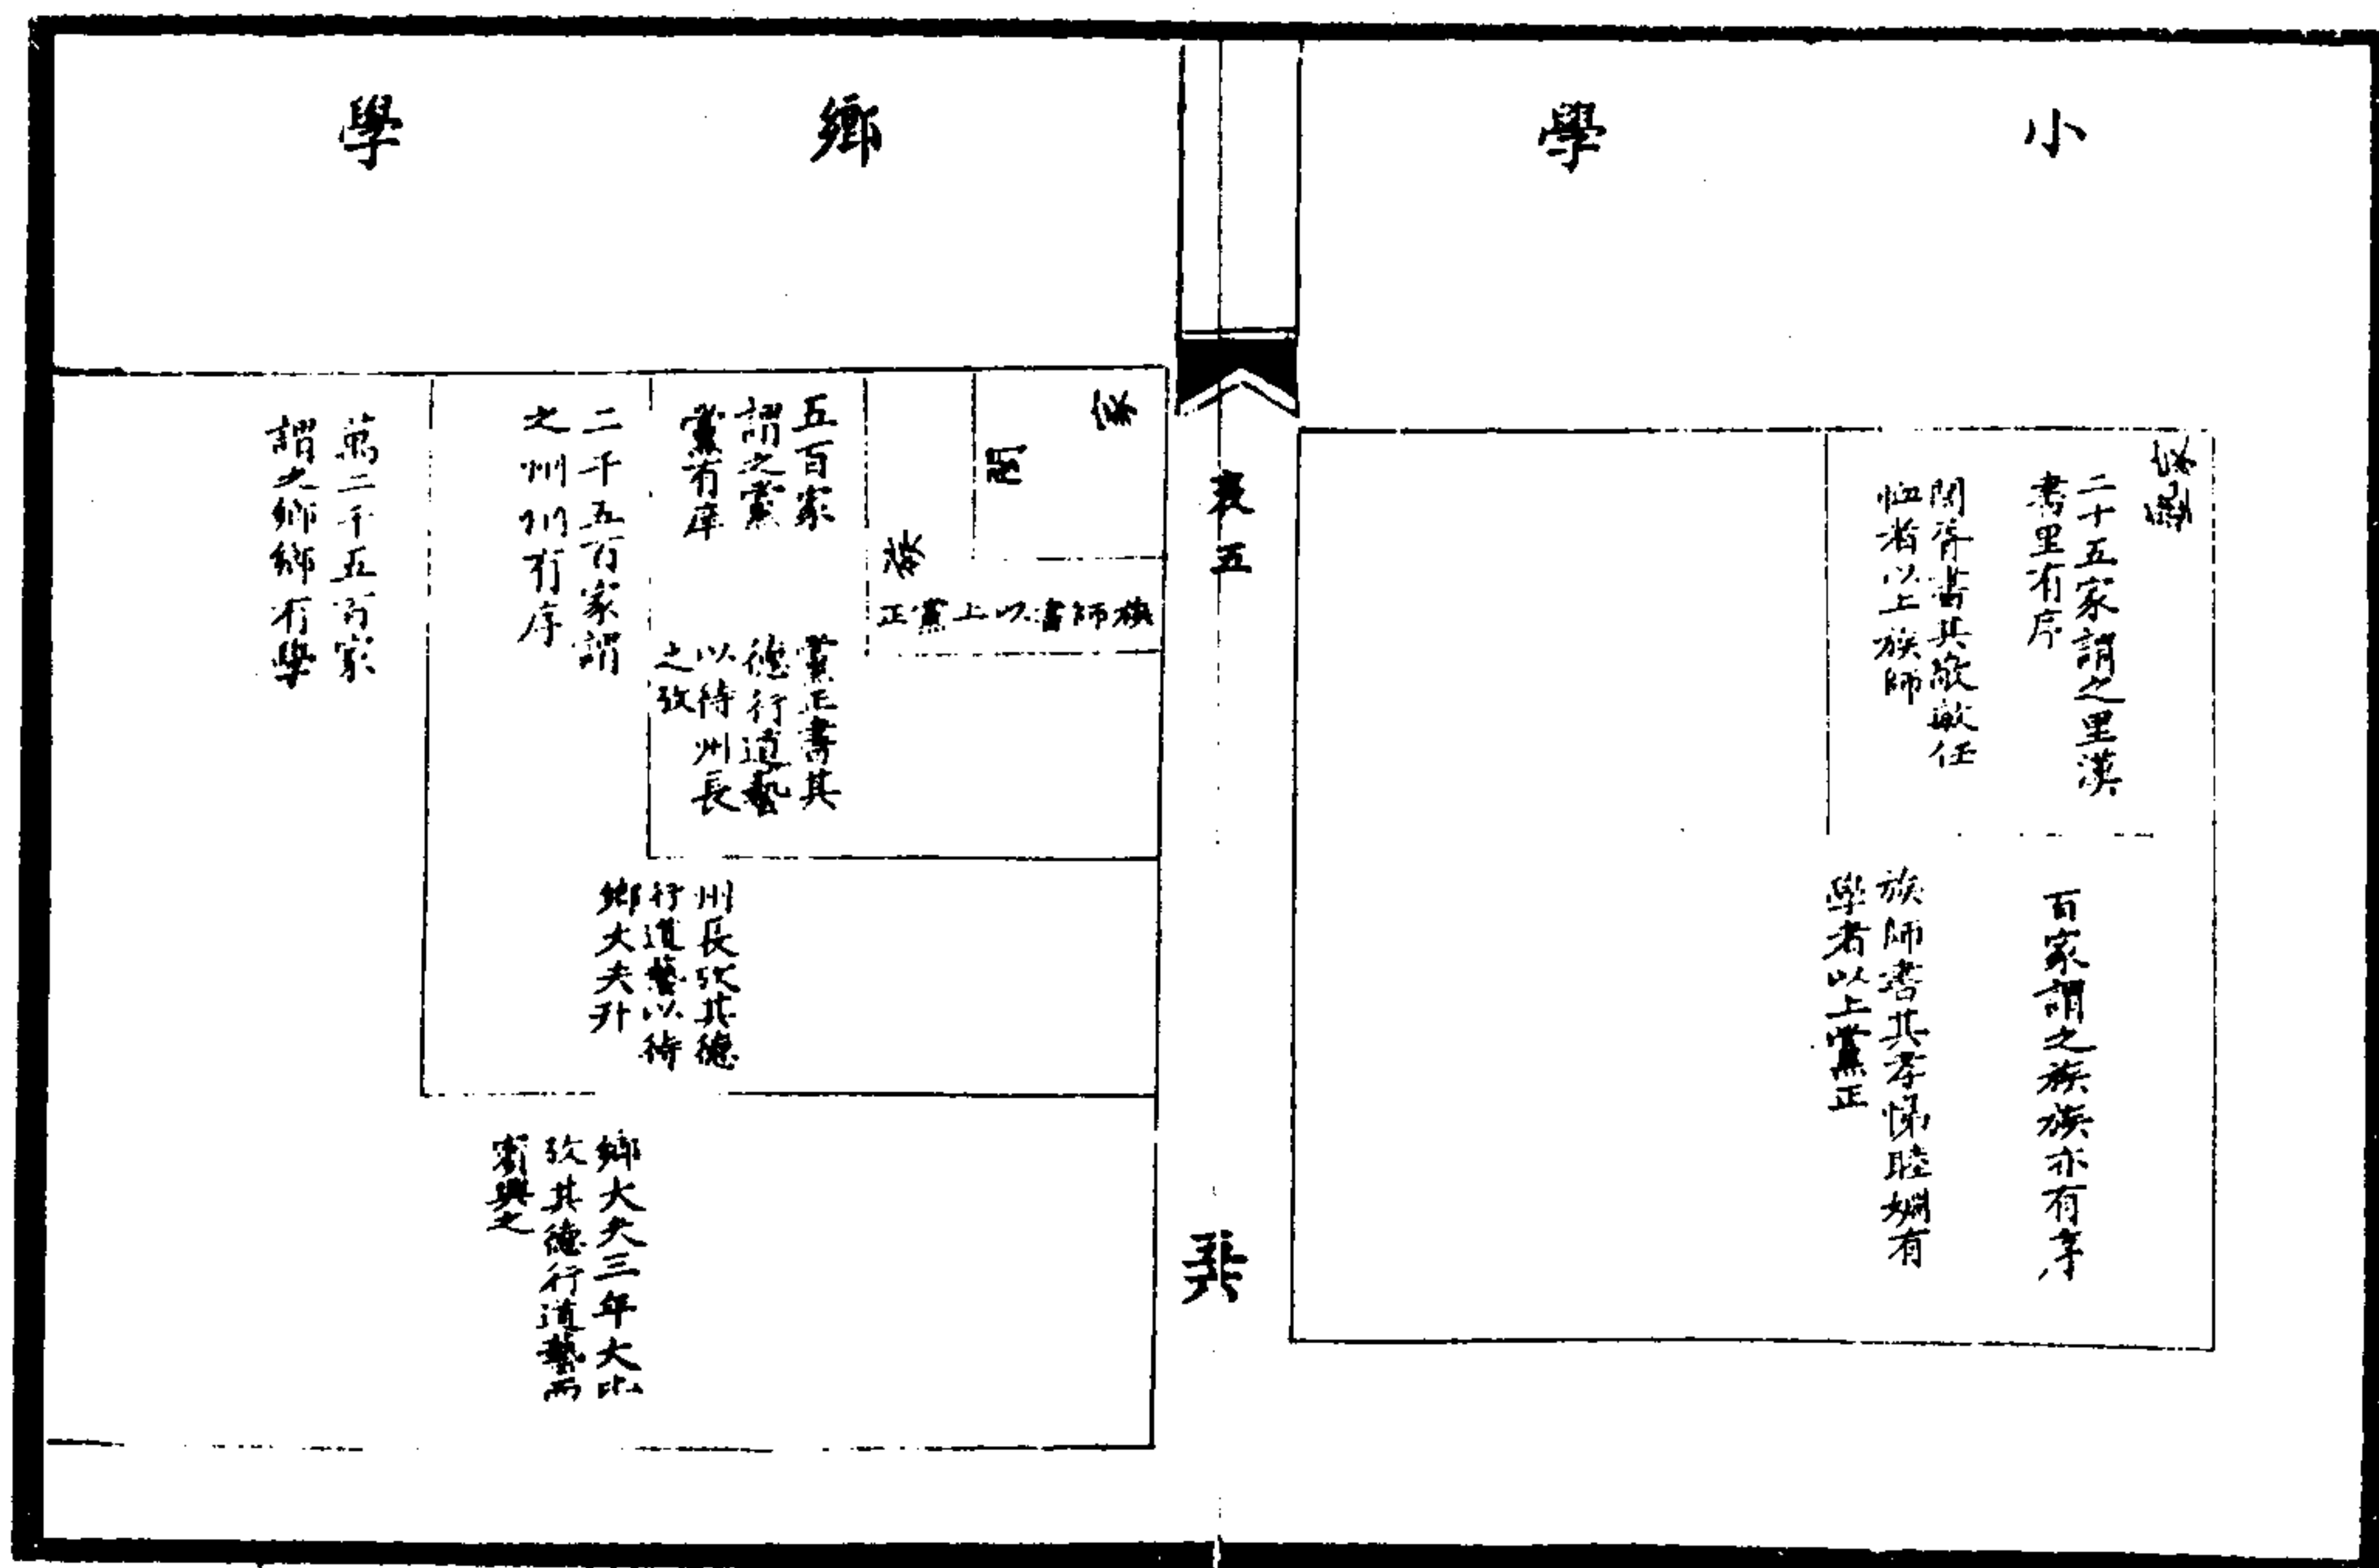 小學
二十五家謂之里漢
書里有序
閭胥書其敬敏任
恤者以上族師
百家謂之族族亦有序
族師書其孝悌睦婣有
學者以上黨正
表五
鄉學
族師書以上黨正
五百家
謂之黨
黨有庠
黨正書其
德行道藝
以待州長
之攷
二千五百家謂
之州州有序
州長攷其德
行道藝以待
鄉大夫升
萬二千五百家
謂之鄉鄉有學
鄉大夫三年大比
攷其德行道藝而
賓興之